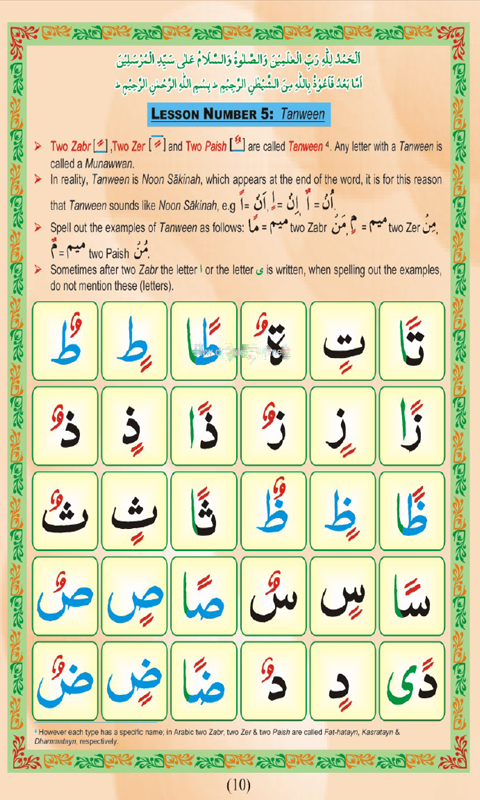 اَلْحَمْدُ لِلّٰهِ رَبِّ الْعٰلَمِیْنَ وَالصَّلٰوةُ وَالسَّلَامُ عَلٰی سَیِّدِ الْمُرْسَلِیْنَ
اَمَّا بَعْدُ فَاَعُوْذُ بِاللّٰهِ مِنَ الشَّیْطٰنِ الرَّجِیْمِ ط بِسْمِ اللّٰهِ الرَّحْمٰنِ الرَّحِیْمِ ط
LESSON NUMBER 5: Tanween
➢ Two Zabr [ ً ] ,Two Zer [ ٍ ] and Two Paish [ ٌ ] are called Tanween ⁴. Any letter with a Tanween is
called a Munawwan.
➢ In reality, Tanween is Noon Sâkinah, which appears at the end of the word, it is for this reason
that Tanween sounds like Noon Sâkinah, e.g اً = اَنْ ,اٍ = اِنْ ,اٌ = اُنْ.
➢ Spell out the examples of Tanween as follows: مًا = میم two Zabr مَنْ, مٍ = میم two Zer مِنْ,
مٌ = میم two Paish مُنْ.
➢ Sometimes after two Zabr the letter ا or the letter ی is written, when spelling out the examples,
do not mention these (letters).
تًا تٍ ةٌ طًا طٍ طٌ
زًا زٍ زٌ ذًا ذٍ ذٌ
ظًا ظٍ ظٌ ثًا ثٍ ثٌ
سًا سٍ سٌ صًا صٍ صٌ
دًی دٍ دٌ ضًا ضٍ ضٌ
⁴ However each type has a specific name; in Arabic two Zabr, two Zer & two Paish are called Fat-hatayn, Kasratayn &
Dhammatayn, respectively.
(10)